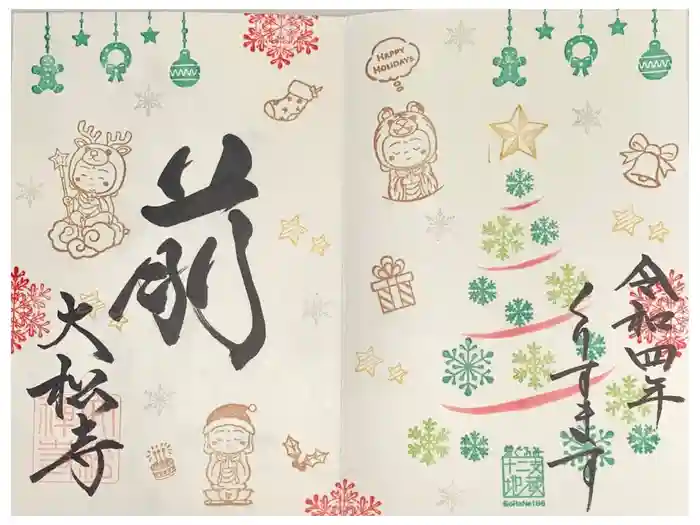 HAPPY
HOLIDAYS
令和四年
くりすます
十二支
地蔵
前
大松寺